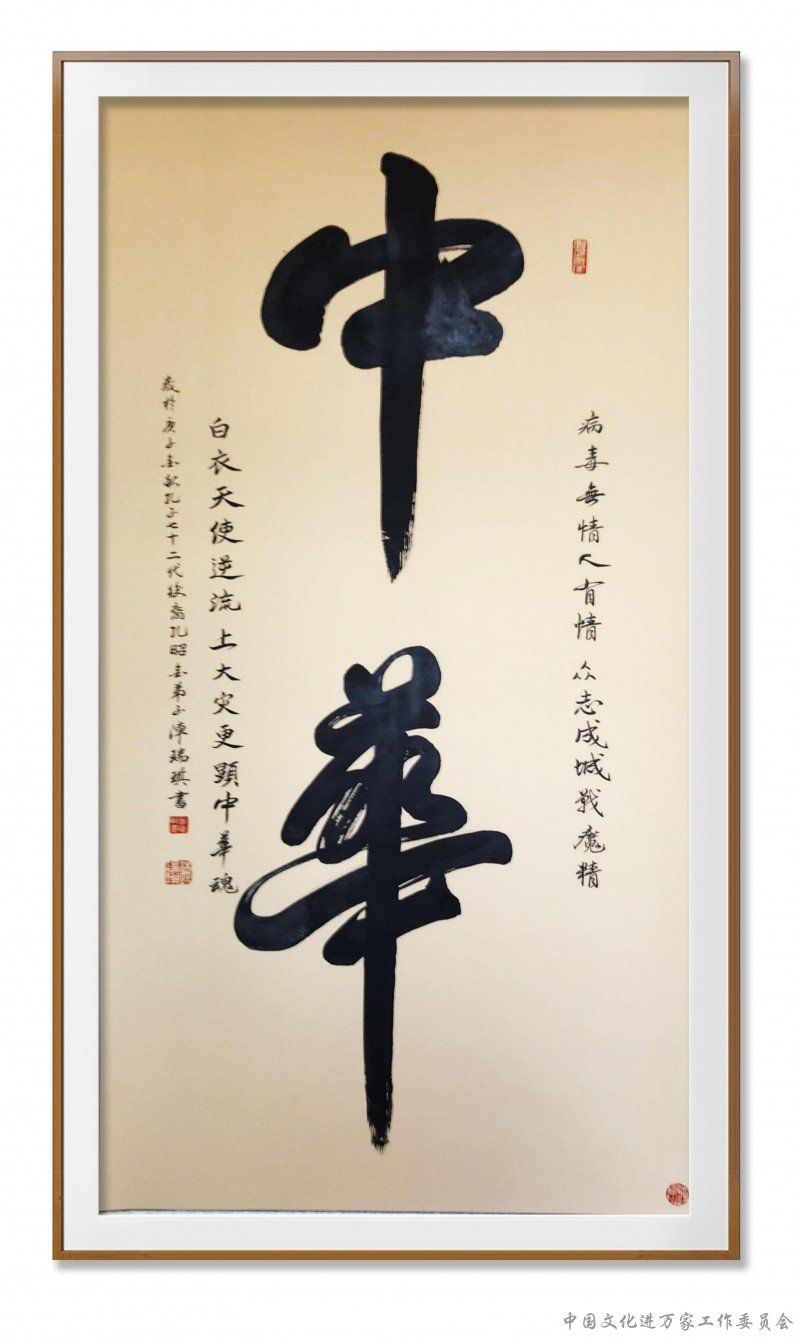 中華
病毒無情人有情众志成城戰魔精
白衣天使逆流上大灾更顯中華魂
歲於庚子金秋孔子七十二代後裔孔昭金弟子潭瑞琪書
中国文化进万家工作委员会